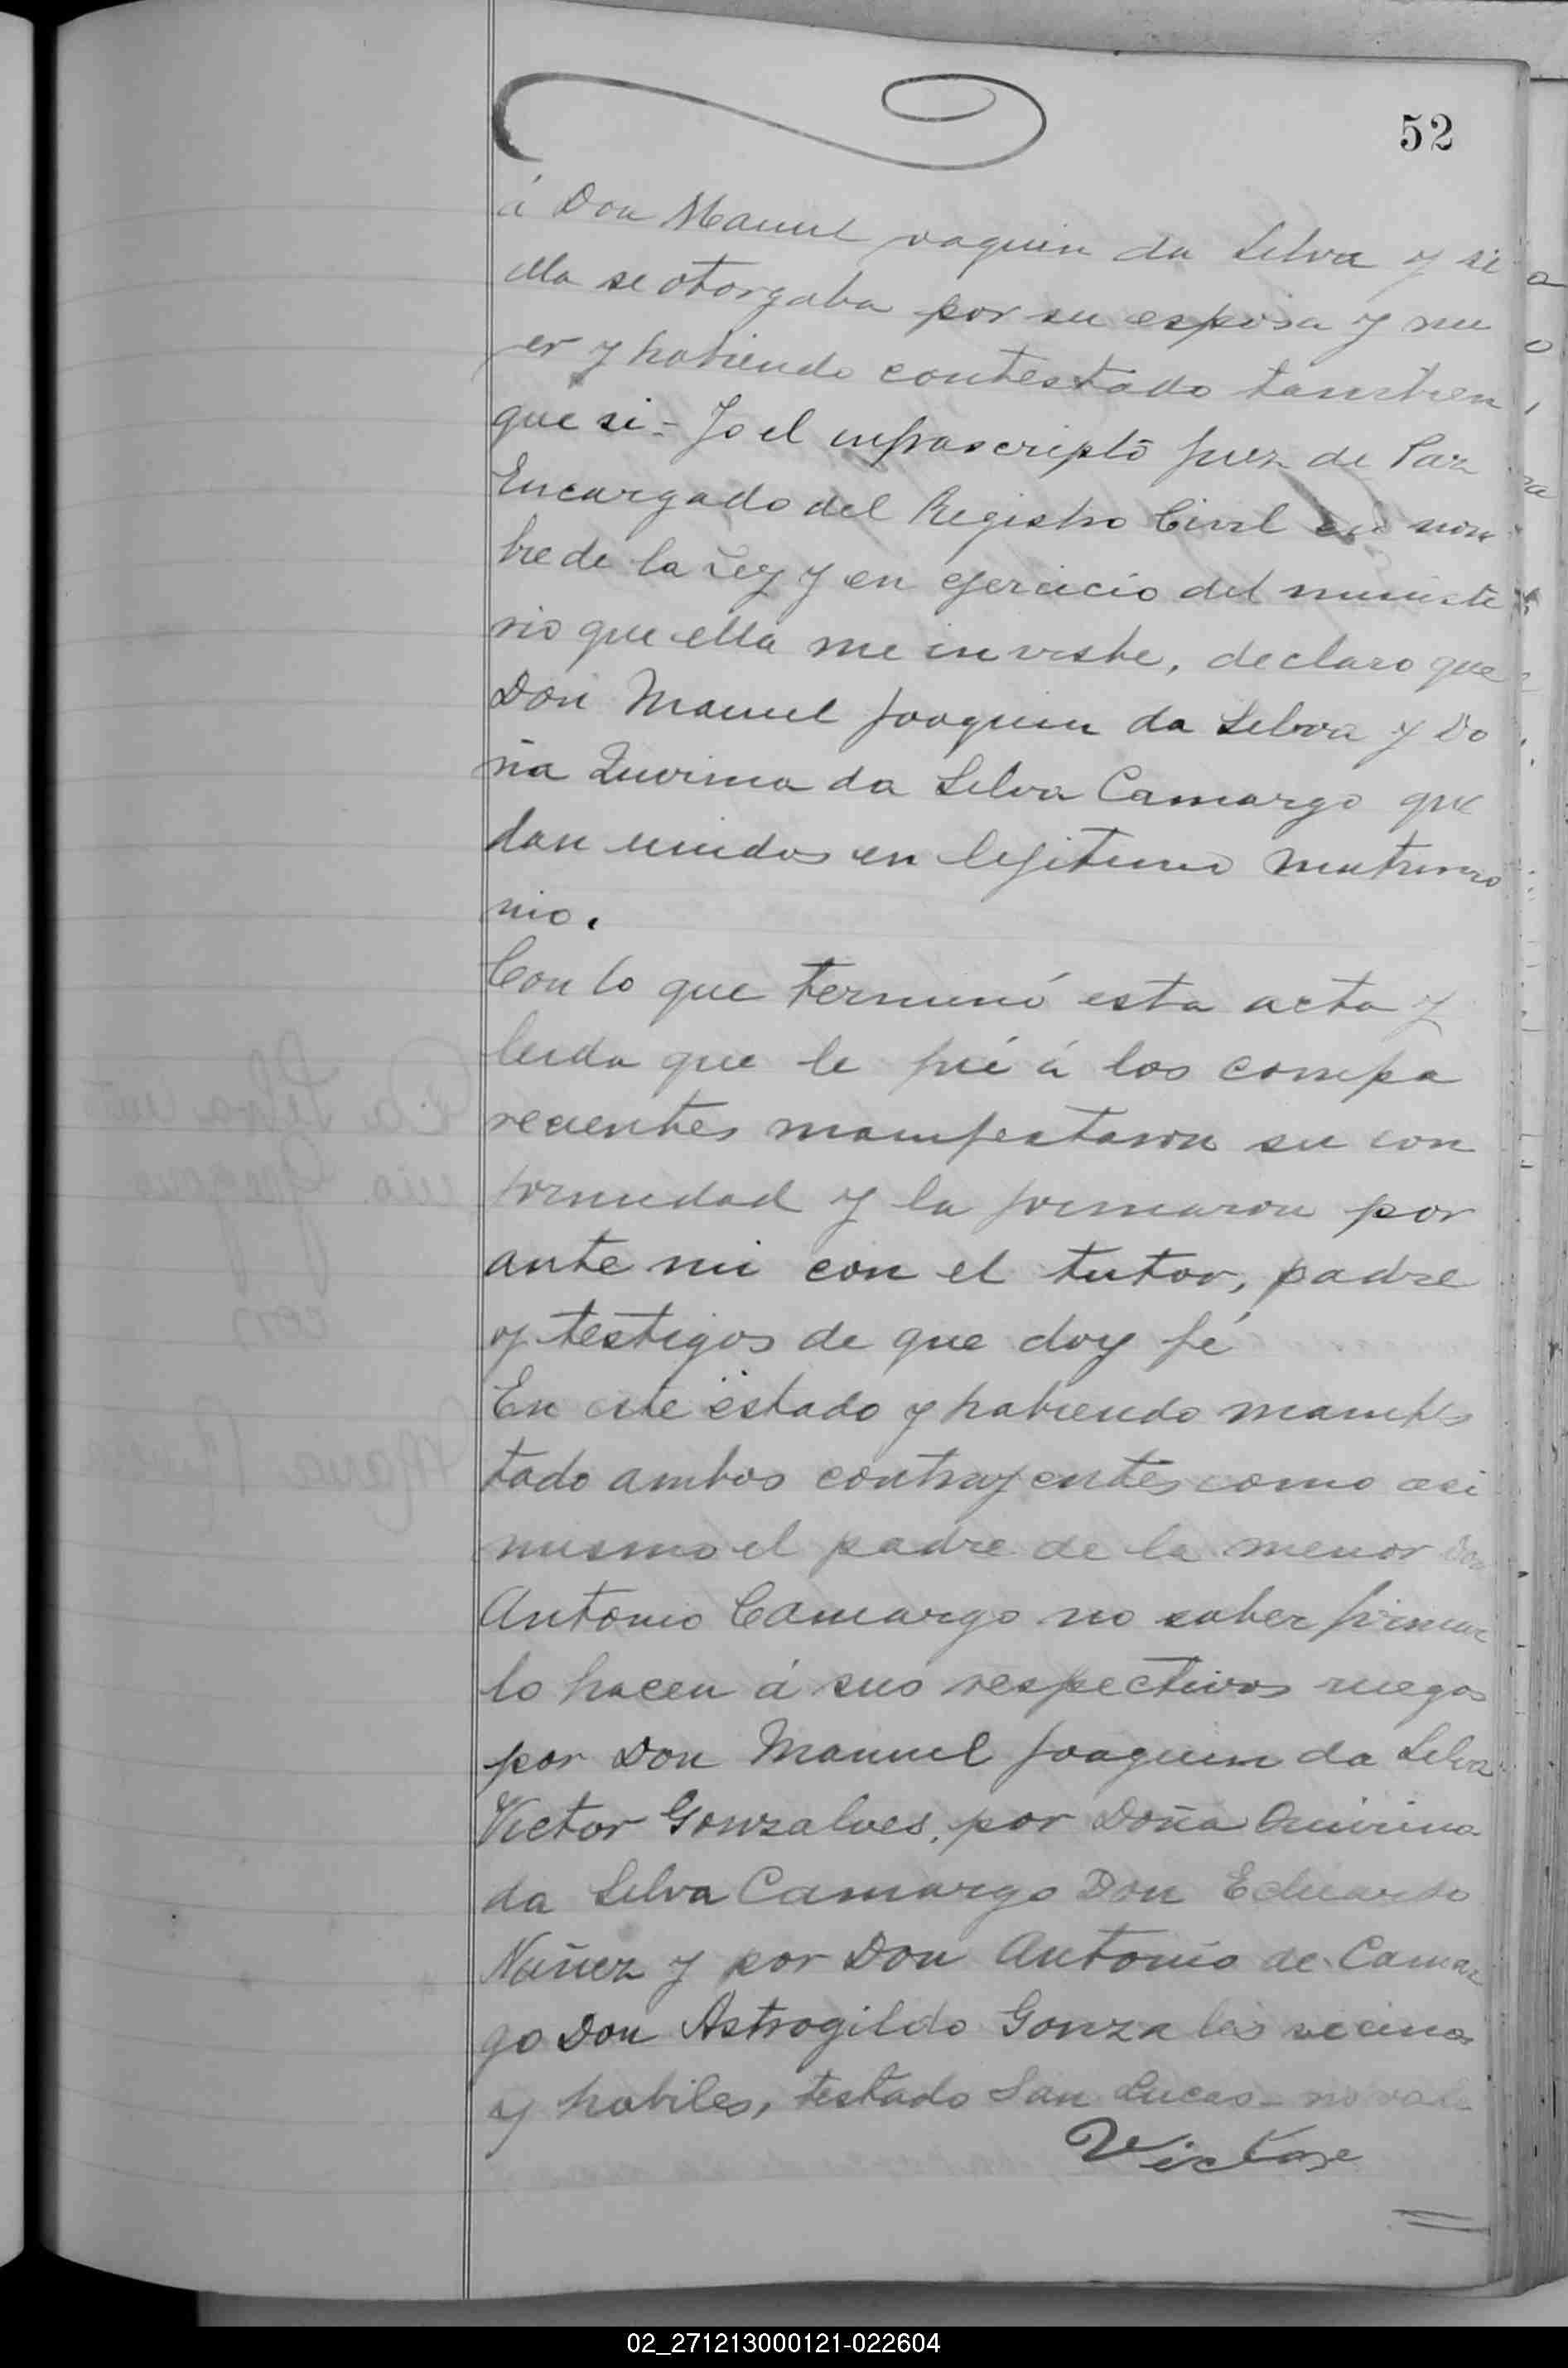 52
á Don Manuel oaquin da Silva y si
ella se otorgaba por su esposa y mu
er y habiendo contestado tambien
que si = Yo el infrascripto Juez de Paz
Encargado del Registro Civil en nom
bre de la Ley y en ejercicio del ministe
rio que ella me inviste, declaro que
Don Manuel Joaquin da Silva y Do
ña Quirina da Silva Camargo que
dan unidos en legitimo matrimo
nio.
Con lo que terminó esta acta y
leida que le fué á los compa
recientes manifestaron su con
formidad y la firmaron por
ante mi con el tutor, padre
y testigos de que doy fé
En este estado y habiendo manifes
tado ambos contrayentes como asi
mismo el padre de la menor Don
Antonio Camargo no saber firmar
lo hacen á sus respectivos ruegos
por Don Manuel Joaquin da Silva
Victor Gonzalves, por Doña Quirina
da Silva Camargo Don Eduardo
Nuñez y por Don Antonio de Camar
go Don Astrogildo Gonzales vecinos
y habiles, testado San Lucas - no vale
Victor
02_271213000121-022604